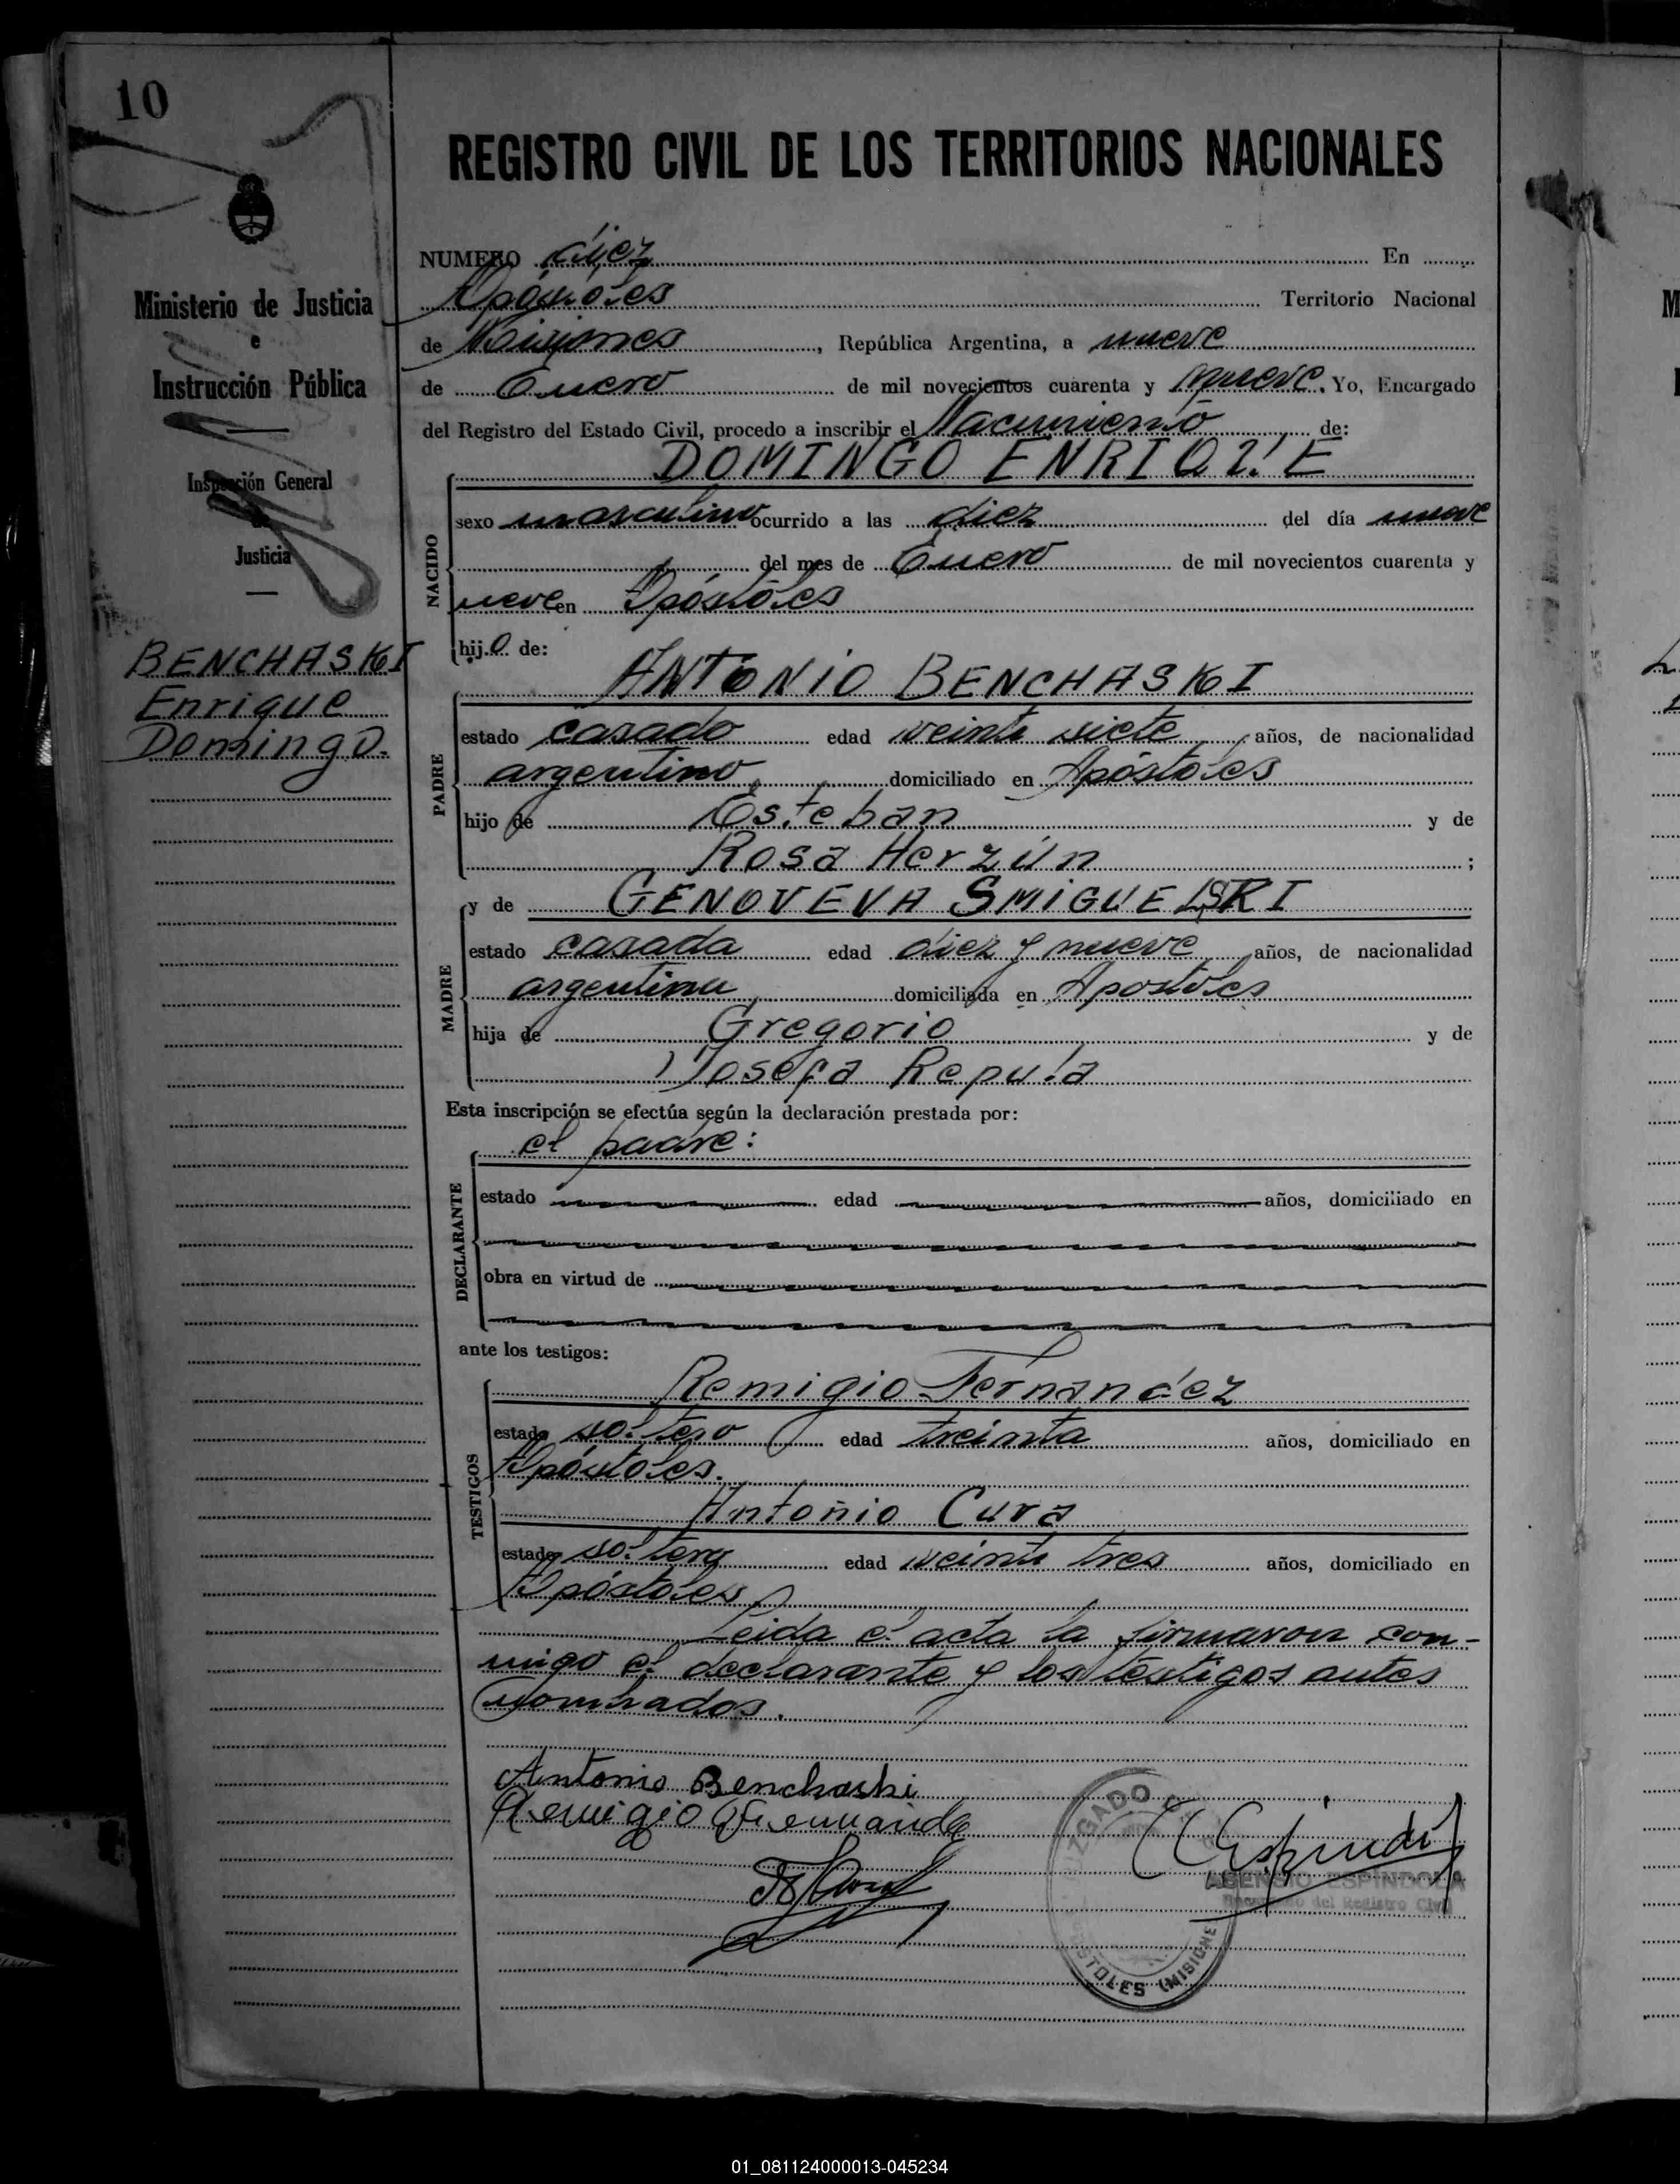 10
REGISTRO CIVIL DE LOS TERRITORIOS NACIONALES
Ministerio de Justicia
e
Instrucción Pública
Inspección General
de
Justicia
BENCHASKI
Enrique
Domingo.
NUMERO diez En
Apóstoles Territorio Nacional
de Misiones, República Argentina, a nueve
de Enero de mil novecientos cuarenta y nueve. Yo, Encargado
del Registro del Estado Civil, procedo a inscribir el Nacimiento de:
DOMINGO ENRIQUE
NACIDO
sexo masculino ocurrido a las diez del día nueve
del mes de Enero de mil novecientos cuarenta y
nueve en Apóstoles
hijo de:
ANTONIO BENCHASKI
PADRE
estado casado edad veinte siete años, de nacionalidad
argentino, domiciliado en Apóstoles
hijo de Esteban y de
Rosa Herzún ;
y de GENOVEVA SMIGUELSKI
MADRE
estado casada edad diez y nueve años, de nacionalidad
argentina, domiciliada en Apostoles
hija de Gregorio y de
Josefa Repula
Esta inscripción se efectúa según la declaración prestada por:
el padre:
DECLARANTE
estado edad años, domiciliado en
obra en virtud de
ante los testigos:
TESTIGOS
Remigio Fernandez
estado soltero edad treinta años, domiciliado en
Apóstoles.
Antonio Cura
estado soltero edad veinte tres años, domiciliado en
Apóstoles
Leida el acta la firmaron con-
migo el declarante y los testigos antes
nombrados.
Antonio Benchaski
Remigio Fernandez
JUZGADO
ASENSIO ESPINDOLA
Encargado del Registro Civil
APOSTOLES (MISIONES
01_081124000013-045234